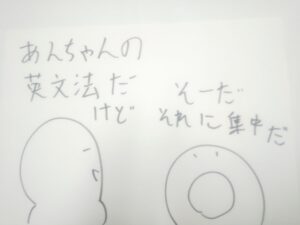 あんちゃんの
英文法だ
けど
そーだ
それに集中だ